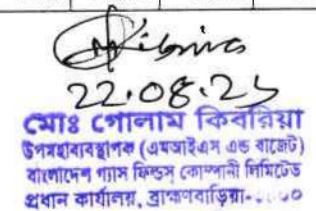 22.08.25
মোঃ গোলাম কিবরিয়া
উপমহাব্যবস্থাপক (এমআইএস এন্ড বাজেট)
বাংলাদেশ গ্যাস ফিল্ডস্ কোম্পানী লিমিটেড
প্রধান কার্যালয়, ব্রাহ্মণবাড়িয়া-